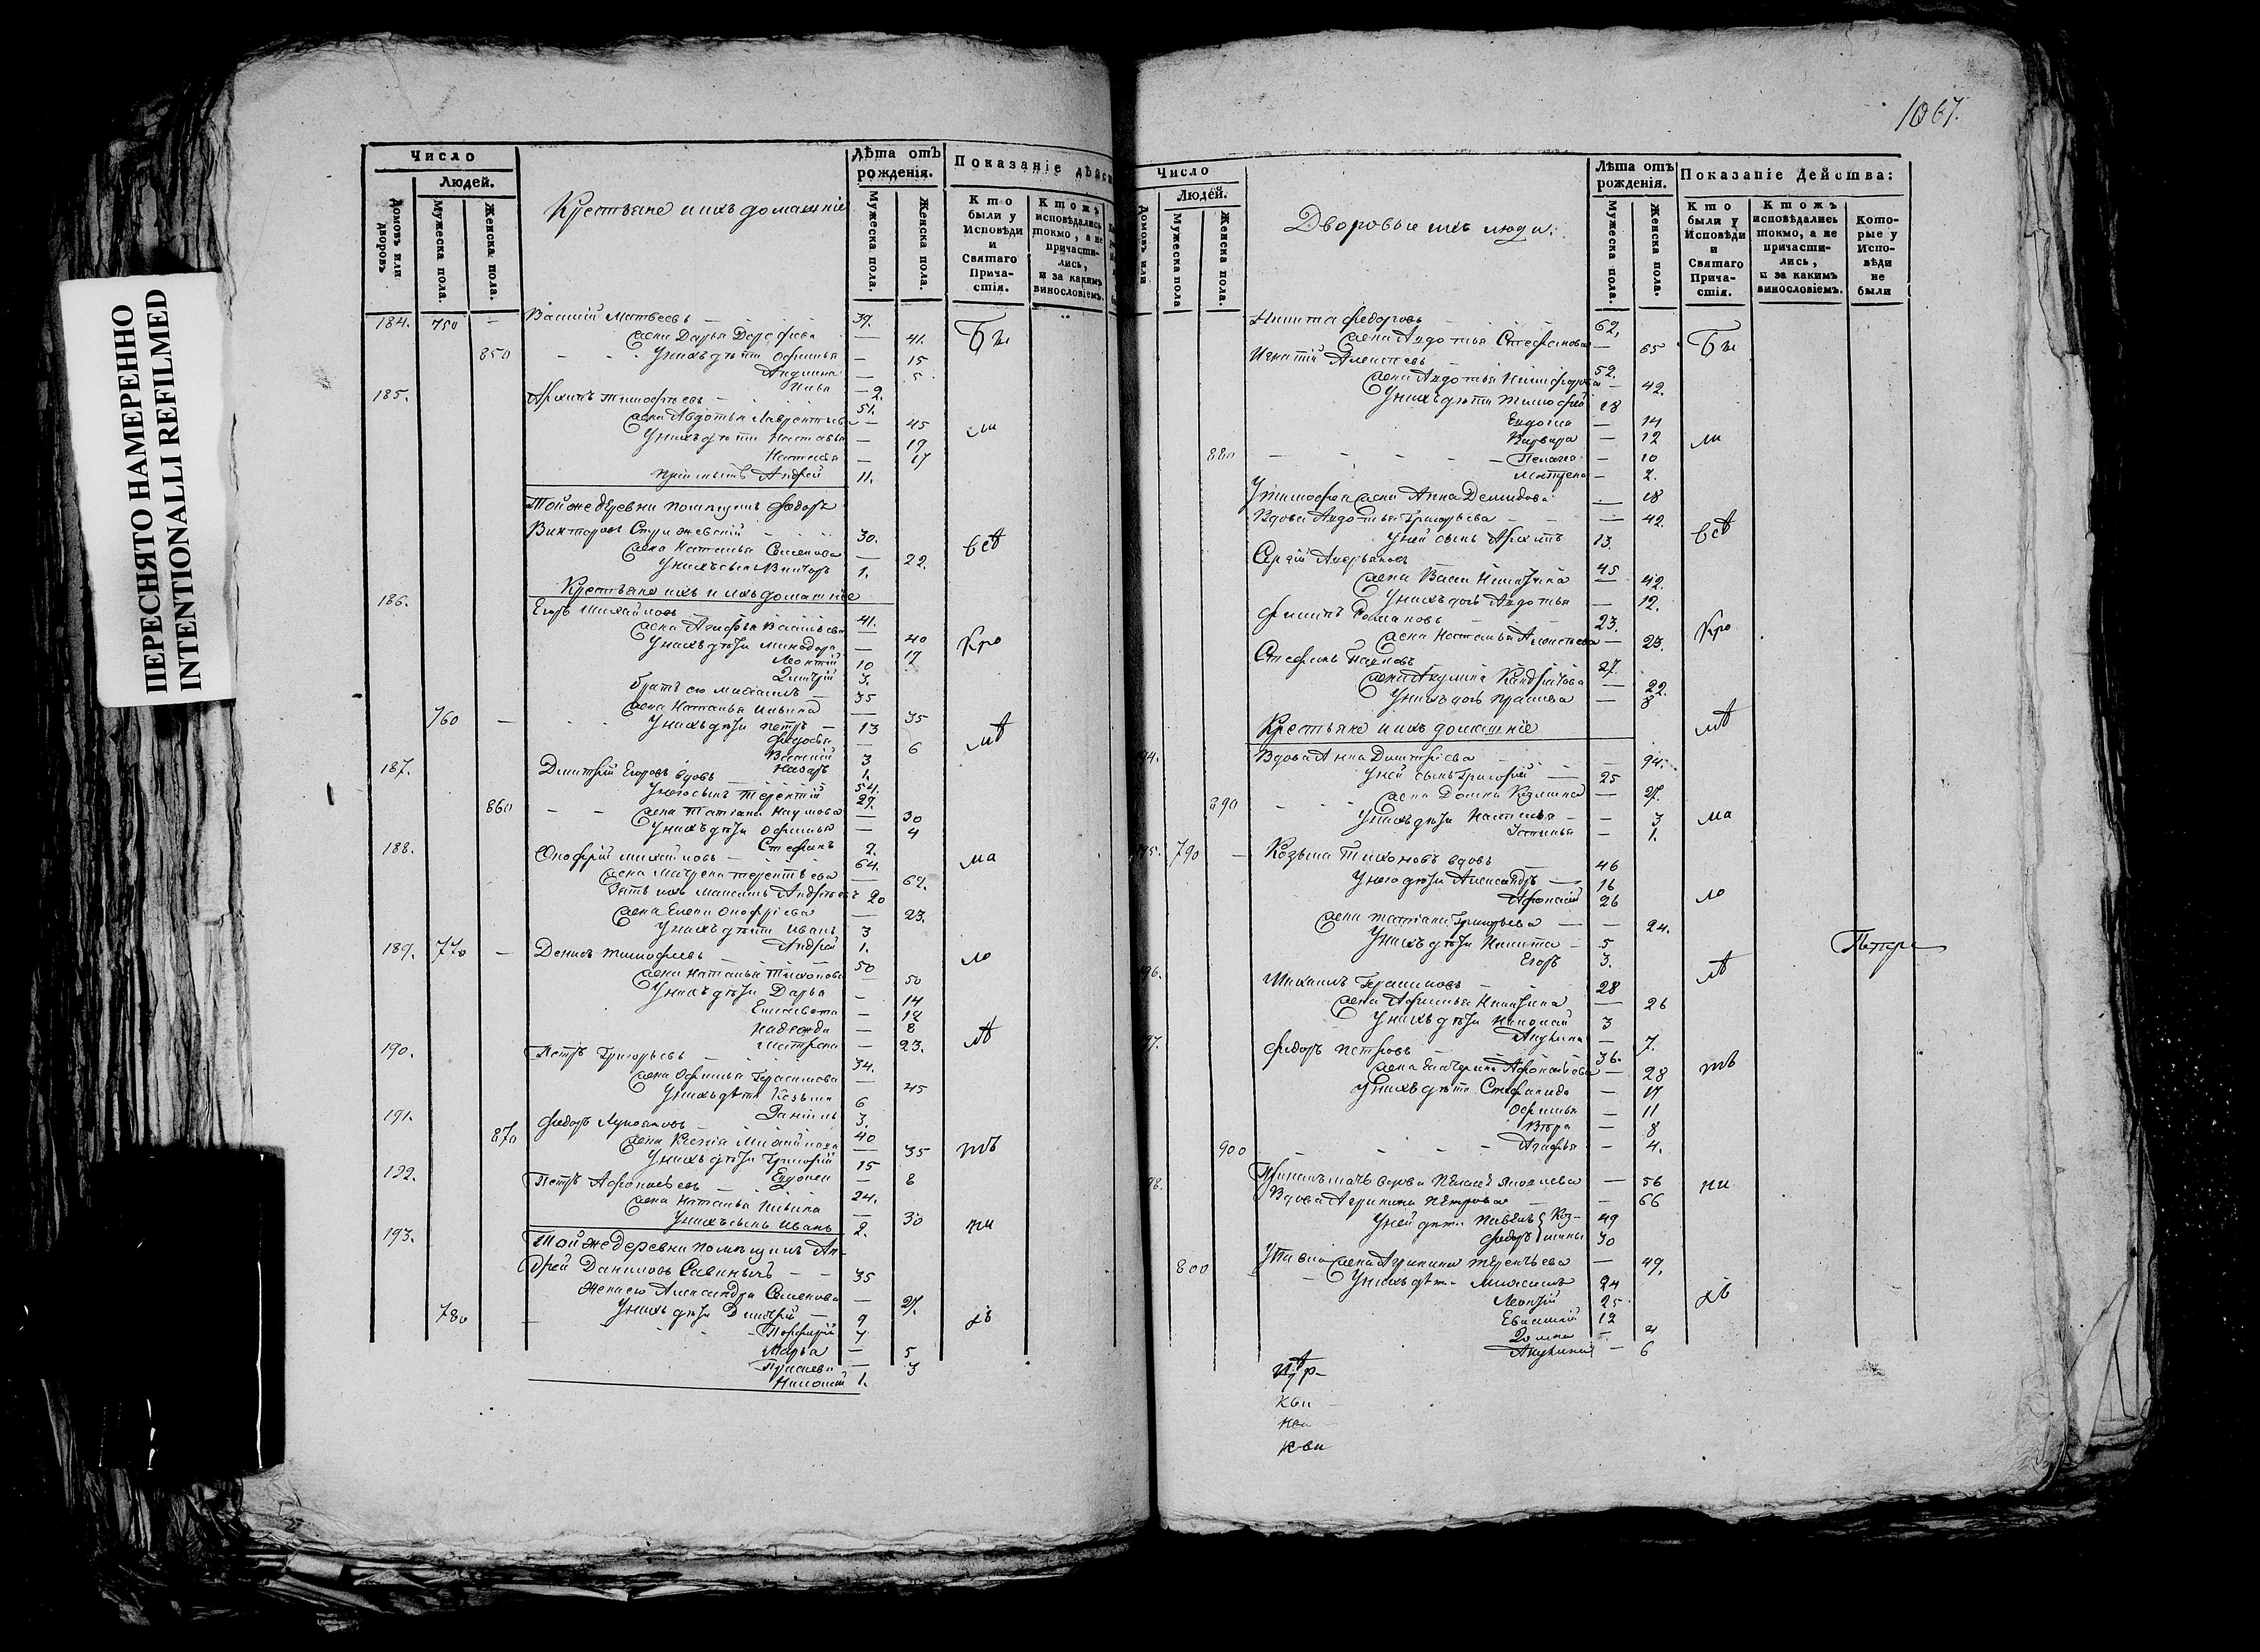 ПЕРЕСНЯТО НАМЕРЕННО
INTENTIONALLI REFILMED
Число
Людей.
Домовъ или дворовъ
Мужеска пола.
Женска пола.
Крестьяне и ихъ домашніе
Лѣта отъ рожденія.
Мужеска пола.
Женска пола.
Показаніе дѣйс
Кто были у Исповѣди и Святаго Причастія.
Ктожъ исповѣдались токмо, а не причастились, и за какимъ винословіемъ.
184. 750 — Василій Матвеевъ 39.
жена Дарья 41. Бы
850 У нихъ дѣти Офимья — 15
Акулина — 5
Илья — 2.
185. Архипъ Тимофеевъ 51.
жена Авдотья Лаврентьева — 45 ли
У нихъ дѣти Настасья — 19
Наталья — 17
Андрей 11.
Той же деревни помѣщикъ Федоръ
Викторовъ 30. всѣ
жена Наталья Семенова — 22.
У нихъ сынъ Викторъ 1.
Крестьяне ихъ и ихъ домашніе
186. Егоръ Михайловъ 41.
жена Агафья Васильева — 40 кро
У нихъ дѣти Минодора — 19
Леонтій 10
Дмитрій 3.
братъ его Михаилъ 35
жена Наталья Ильина — 35
760 — У нихъ дѣти Петръ 13 мѣ
Федосья — 6
Василій 3
Назаръ 1.
187. Дмитрій Егоровъ вдовъ 54.
У него сынъ Терентій 29.
860 жена Татіана Наумова — 30
У нихъ дѣти Офимья — 4
Стефанъ 2.
188. Онофрій Михайловъ 64. ма
жена Матрена Терентьева — 62.
Зять ихъ Максимъ Андреевъ 20
жена Елена Онофріева — 23.
У нихъ дѣти Иванъ 3
Андрей 1.
189. 770 — Денисъ Тимофеевъ 50 ло
жена Наталья Тихонова — 50
У нихъ дѣти Дарья — 14
Елисавета — 12
Надежда — 8
Матрена — 23. лѣ
190. Петръ Григорьевъ 34.
жена Офимья Герасимова — 45
У нихъ дѣти Козьма 6
Данилъ 3.
191. Федоръ 40
870 жена Ксенія Михайлова — 35 тъ
У нихъ дѣти Григорій 15
Евдокея — 8
192. Петръ Афонасьевъ 24.
жена Наталья Ильина — 30
У нихъ сынъ Иванъ 2. ни
193. Той же деревни помѣщикъ Ан-
дрей Даниловъ Савиничъ 35
жена его Александра Семенова — 27.
780 — У нихъ дѣти Дмитрій 9 хъ
Порфирій 7
Марья — 5
Прасковья — 3
Николай 1.
1067.
Число
Людей.
Домовъ или
Мужеска пола
Женска пола.
Дворовые ихъ люди:
Лѣта отъ рожденія.
Мужеска пола.
Женска пола.
Показаніе Дейсшва:
Кто были у Исповѣди и Святаго Причастія.
Ктожъ исповѣдались токмо, а не причастились, и за какимъ винословіемъ.
Которые у Исповѣди не были
Никита Федоровъ 62.
жена Авдотья Стефанова — 65 Бы
Игнатій Алексеевъ 52.
жена Авдотья — 42.
У нихъ дѣти Тимофей 18
Евдокия — 14
Варвара — 12 ли
880 Пелагея — 10
Матрена — 2.
У Тимофея жена Анна Демидова — 18
Вдова Авдотья Григорьева — 42.
У ней сынъ Архипъ 13. всѣ
Сергій Аверьяновъ 45
жена Васса Никитина — 42.
У нихъ дочь Авдотья — 12.
Филипъ Романовъ 23.
жена Наталья Алексеева — 23. кро
Стефанъ 27.
жена Акулина — 22.
У нихъ дочь — 8
Крестьяне и ихъ домашніе мѣ
94. Вдова Анна Дмитріева — 94.
У ней сынъ Григорій 25
890 жена Домна — 27.
У нихъ дѣти Настасья — 3 ма
Устинья — 1.
95. 790 — Козьма Тихоновъ вдовъ 46
У него дѣти Александръ 16
Афонасій 26 ло
жена Татіана Григорьева — 24.
У нихъ дѣти Никита 5
Егоръ 3. лѣ
96. Михаилъ Герасимовъ 28
жена Афимья Никитина — 26
У нихъ дѣти Николай 3
Акулина — 7.
97. Федоръ Петровъ 36.
жена Екатерина Афонасьева — 28 тъ
У нихъ дѣти Стефанида — 17
Офимья — 11
Вѣра — 8
900 Агафья — 4.
98. вдова — 56 ни
Вдова Агрипина Петрова — 66
У ней дѣти Павелъ 49
Федоръ 30
800 У Павла жена Агрипина Терентьева — 49.
У нихъ дѣти Максимъ 24
Леонтій 25 хъ
Евсигній 12
Домна — 4
Акулина — 6
кви
кви
кви